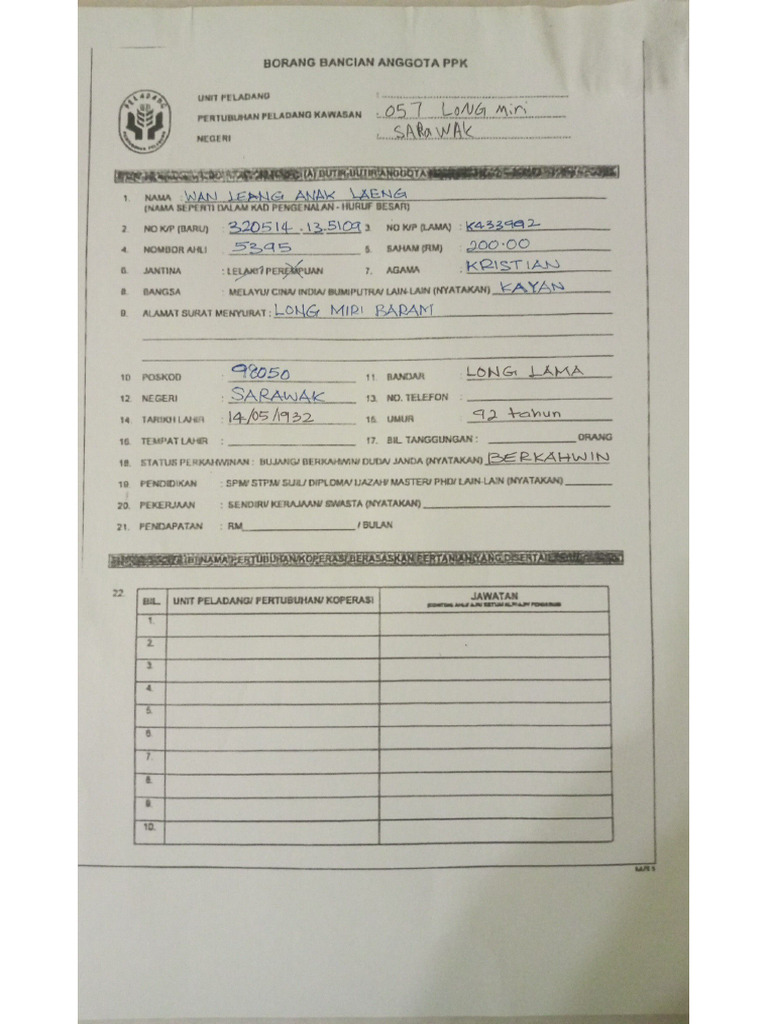 BORANG BANCIAN ANGGOTA PPK
PELADANG
UNIT PELADANG :
PERTUBUHAN PELADANG KAWASAN : 057 LONG Miri
NEGERI : SARAWAK
(A) BUTIR-BUTIR ANGGOTA
1. NAMA : WAN LEANG ANAK LAENG
(NAMA SEPERTI DALAM KAD PENGENALAN - HURUF BESAR)
2. NO K/P (BARU) : 320514.13.5109 3. NO K/P (LAMA) : K433992
4. NOMBOR AHLI : 5395 5. SAHAM (RM) : 200.00
6. JANTINA : LELAKI / PEREMPUAN 7. AGAMA : KRISTIAN
8. BANGSA : MELAYU/ CINA/ INDIA/ BUMIPUTRA/ LAIN-LAIN (NYATAKAN) KAYAN
9. ALAMAT SURAT MENYURAT : LONG MIRI BARAM
10. POSKOD : 98050 11. BANDAR : LONG LAMA
12. NEGERI : SARAWAK 13. NO. TELEFON :
14. TARIKH LAHIR : 14/05/1932 15. UMUR : 92 tahun
16. TEMPAT LAHIR : 17. BIL. TANGGUNGAN : ORANG
18. STATUS PERKAHWINAN : BUJANG/ BERKAHWIN/ DUDA/ JANDA (NYATAKAN) BERKAHWIN
19. PENDIDIKAN : SPM/ STPM/ SIJIL/ DIPLOMA/ IJAZAH/ MASTER/ PHD/ LAIN-LAIN (NYATAKAN)
20. PEKERJAAN : SENDIRI/ KERAJAAN/ SWASTA (NYATAKAN)
21. PENDAPATAN : RM / BULAN
(B) NAMA PERTUBUHAN/KOPERASI BERASASKAN PERTANIAN YANG DISERTAI
22. BIL. UNIT PELADANG/ PERTUBUHAN/ KOPERASI JAWATAN
1.
2.
3.
4.
5.
6.
7.
8.
9.
10.